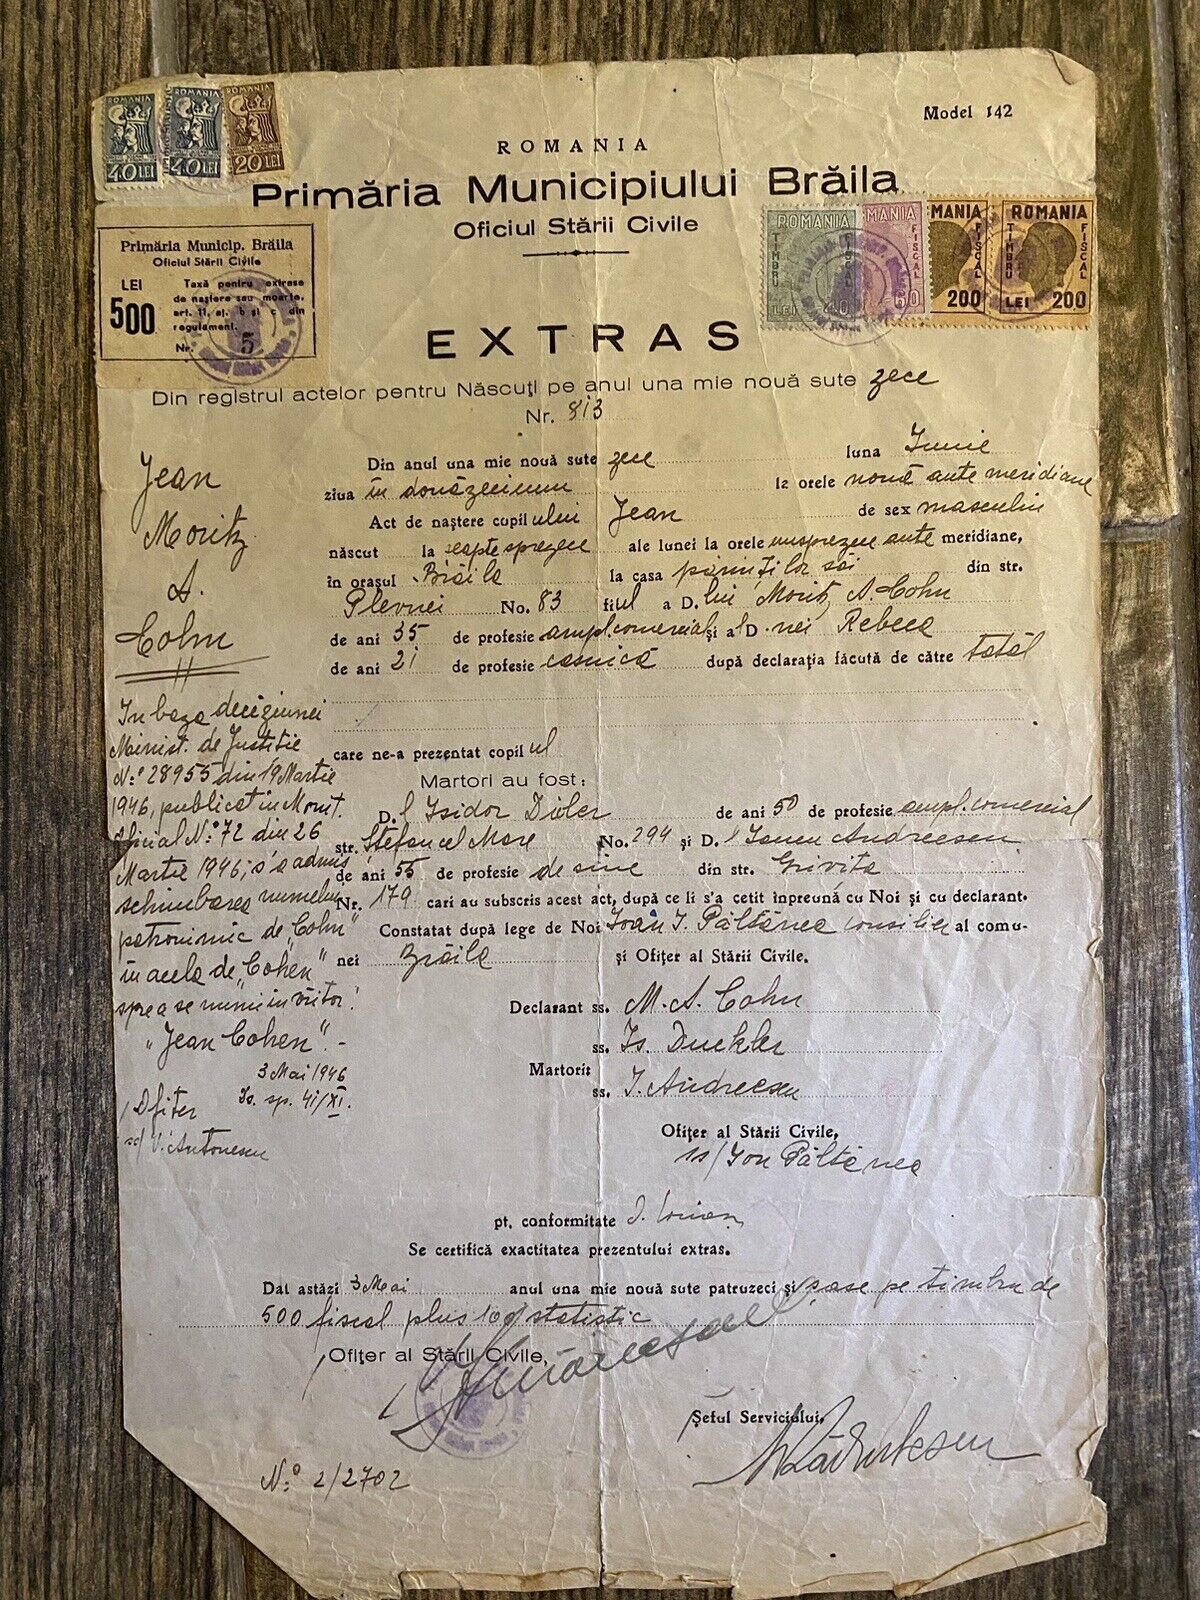 ROMANIA
40 LEI
ROMANIA
40 LEI
ROMANIA
20 LEI
Model 142
ROMANIA
Primăria Municipiului Brăila
Oficiul Stării Civile
Primăria Municip. Brăila
Oficiul Stării Civile
LEI 500
Taxă pentru extrase
de naștere sau moarte,
art. 11, al. b și c din
regulament.
Nr. 5
ROMANIA
TIMBRU FISCAL
LEI 40
MANIA
FISCAL
60
MANIA
FISCAL
200
ROMANIA
TIMBRU FISCAL
LEI 200
EXTRAS
Din registrul actelor pentru Născuți pe anul una mie nouă sute zece
Nr. 813
Jean
Moritz
A.
Cohn
Din anul una mie nouă sute zece luna Iunie
ziua în douăzeciunu la orele nouă ante meridiane
Act de naștere copilului Jean de sex masculin
născut la șaptesprezece ale lunei la orele unsprezece ante meridiane,
în orașul Brăila la casa părinților săi din str.
Plevnei No. 83 fiul a D. lui Moritz A. Cohn
de ani 35 de profesie ampl. comercial și al D-nei Rebeca
de ani 21 de profesie casnică după declarația făcută de către tatăl
care ne-a prezentat copilul
Martori au fost:
D. l Isidor de ani 50 de profesie ampl. comercial
str. Ștefan cel Mare No. 294 și D. l Andreescu
de ani 55 de profesie de sine din str. Grivița
Nr. 179 cari au subscris acest act, după ce li s'a cetit înpreună cu Noi și cu declarant.
Constatat după lege de Noi Ioan I. Păltânea consilier al comu-
nei Brăila și Ofițer al Stării Civile.
Declarant ss. M. A. Cohn
ss. Is. Duckler
Martori:
ss. I. Andreescu
Ofițer al Stării Civile,
ss/ Ion Păltânea
In baza deciziunei
Minist. de Justiție
No 28955 din 19 Martie
1946, publicat în Monit.
Oficial No 72 din 26
Martie 1946, s'a admis
schimbarea numelui
patronimic de "Cohn"
în acela de "Cohen"
spre a se numi în viitor:
"Jean Cohen". -
3 Mai 1946
Is. sp. 41/XI.
Ofiter
ss/ V. Antonescu
pt. conformitate
Se certifică exactitatea prezentului extras.
Dat astăzi 3 Mai anul una mie nouă sute patruzeci și șase pe timbru de
500 fiscal plus 100 statistic
Ofițer al Stării Civile,
Șeful Serviciului,
No 2/2702